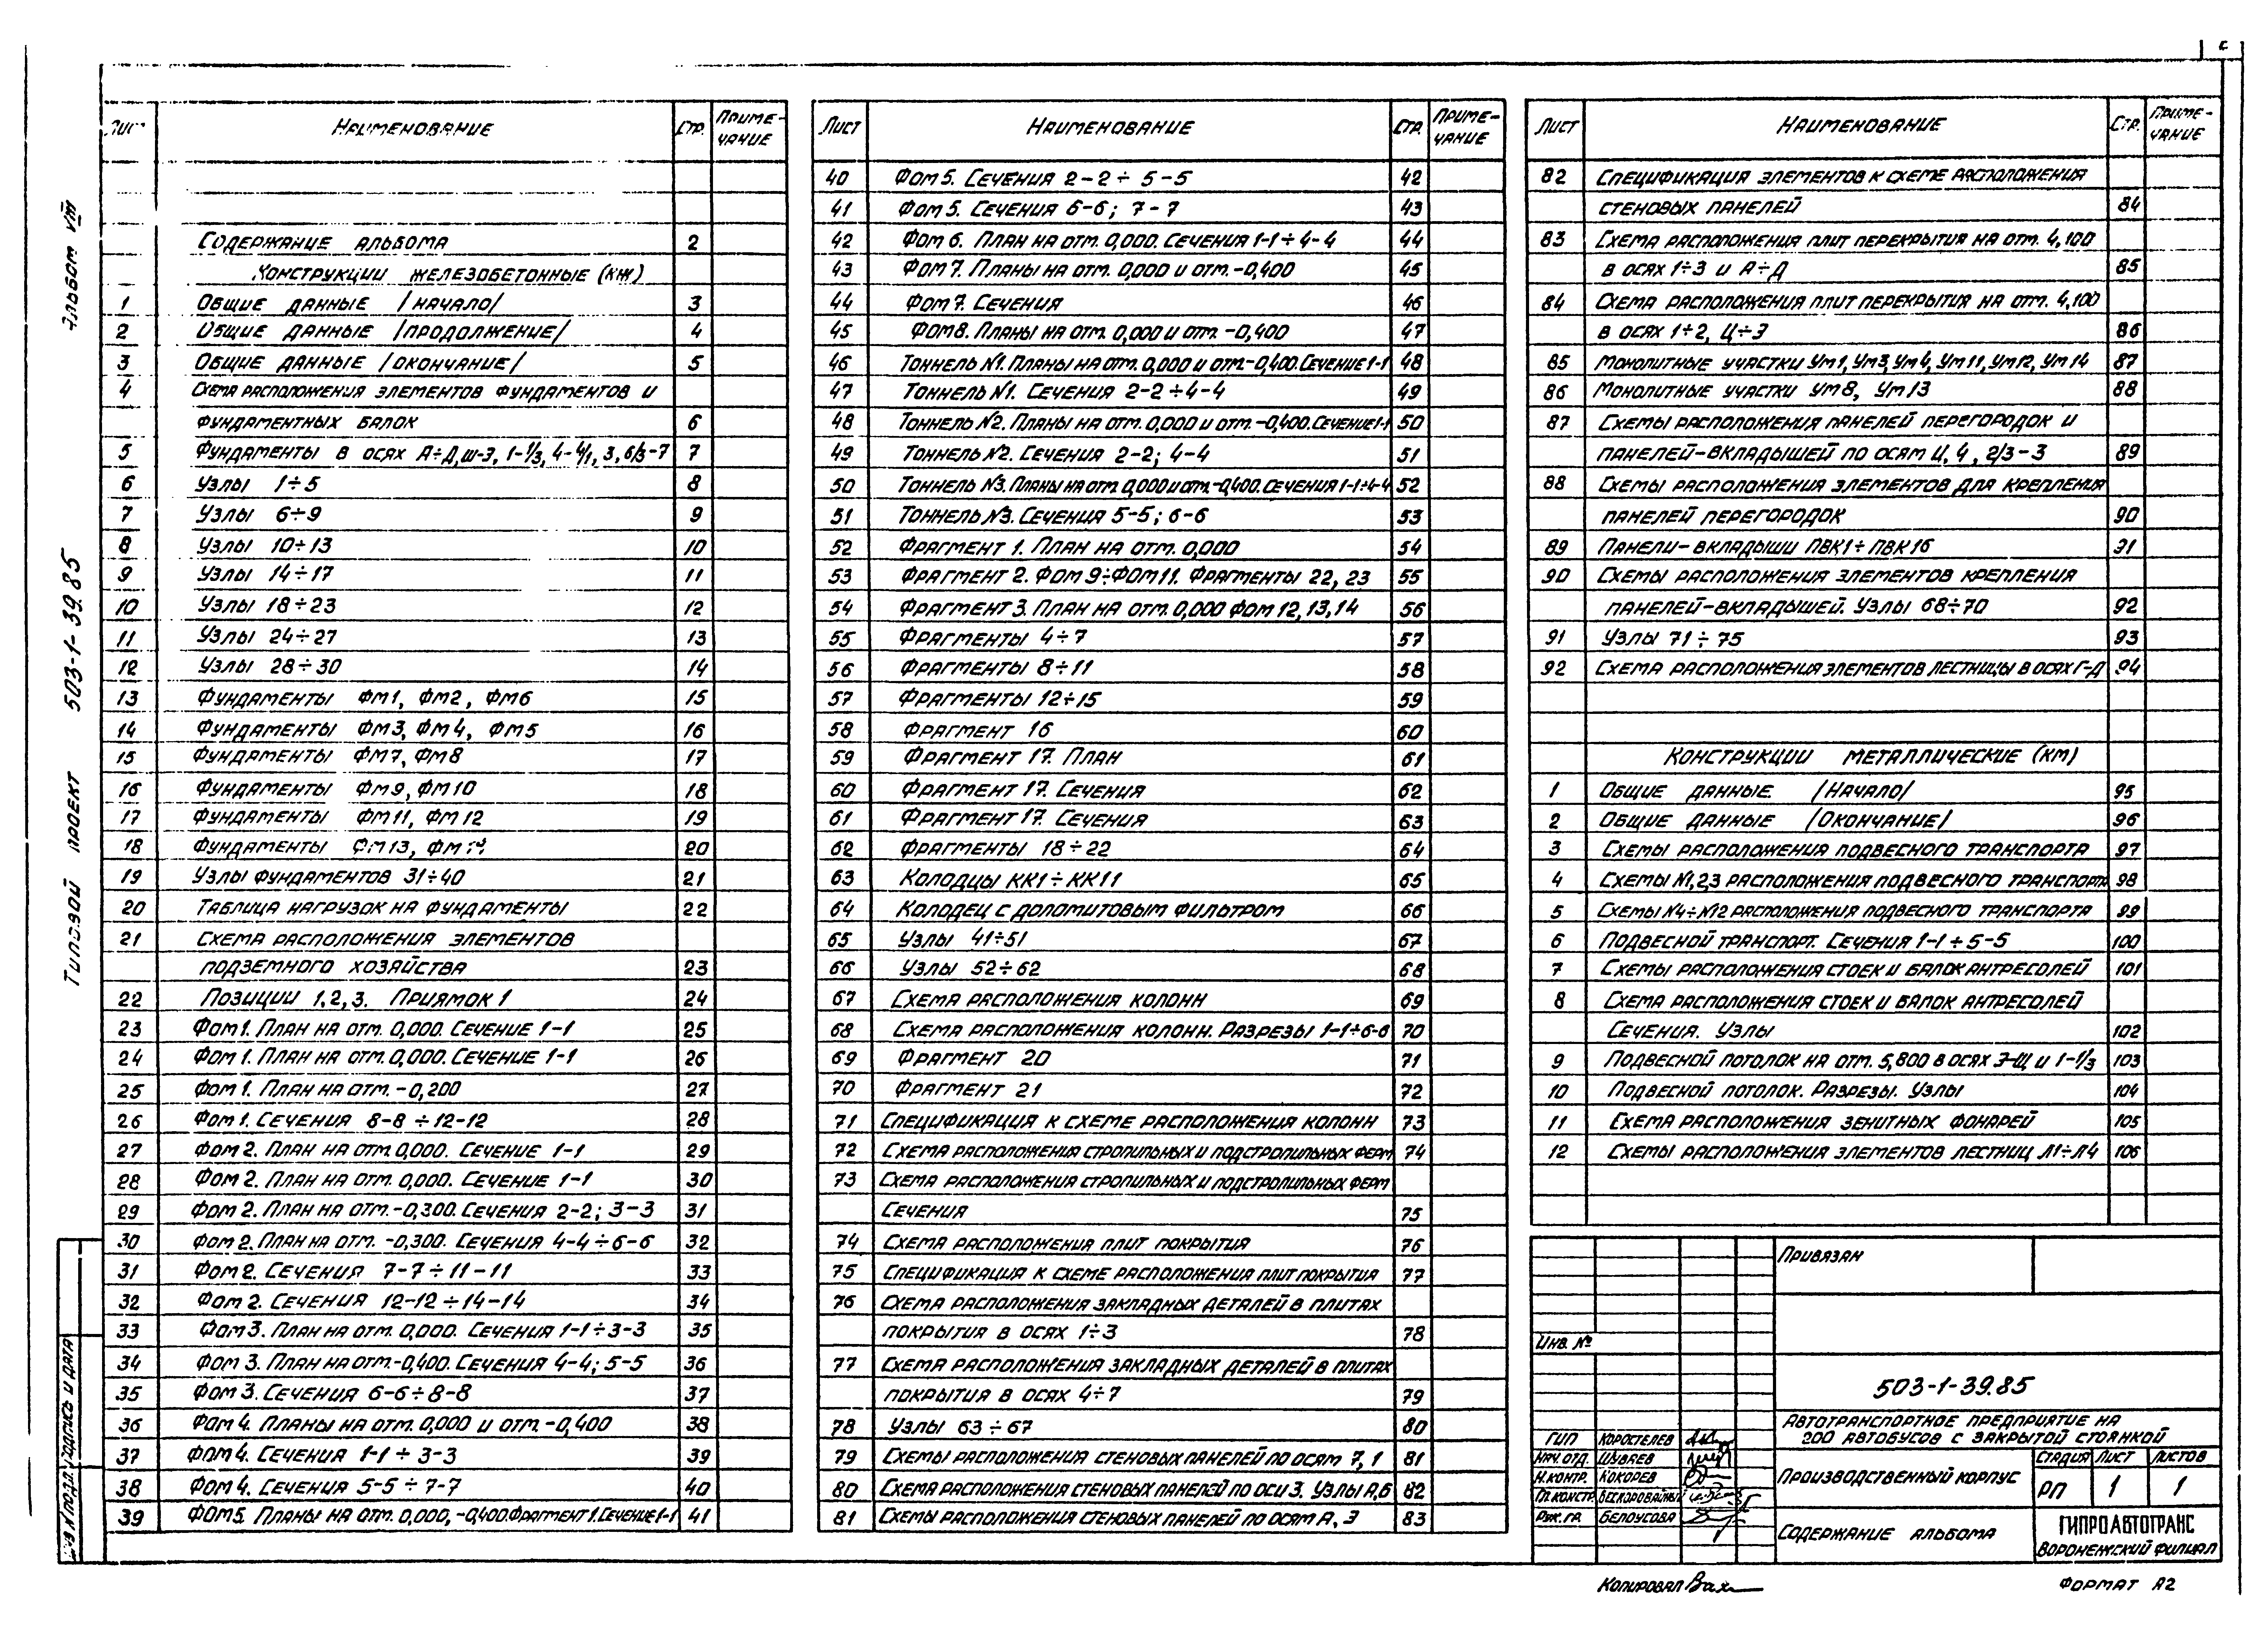 Альбом VIII
Типовой проект 503-1-39.85
Лист Наименование Стр. Приме-чание
Содержание альбома 2
Конструкции железобетонные (КЖ)
1 Общие данные /начало/ 3
2 Общие данные /продолжение/ 4
3 Общие данные /окончание/ 5
4 Схема расположения элементов фундаментов и
фундаментных балок 6
5 Фундаменты в осях А÷Д, Ш-Э, 1-1/3, 4-4/1, 3, 6/3-7 7
6 Узлы 1÷5 8
7 Узлы 6÷9 9
8 Узлы 10÷13 10
9 Узлы 14÷17 11
10 Узлы 18÷23 12
11 Узлы 24÷27 13
12 Узлы 28÷30 14
13 Фундаменты Фм1, Фм2, Фм6 15
14 Фундаменты Фм3, Фм4, Фм5 16
15 Фундаменты Фм7, Фм8 17
16 Фундаменты Фм9, Фм10 18
17 Фундаменты Фм11, Фм12 19
18 Фундаменты Фм13, Фм14 20
19 Узлы фундаментов 31÷40 21
20 Таблица нагрузок на фундаменты 22
21 Схема расположения элементов
подземного хозяйства 23
22 Позиции 1,2,3. Приямок 1 24
23 Фом1. План на отм. 0,000. Сечение 1-1 25
24 Фом1. План на отм. 0,000. Сечение 1-1 26
25 Фом1. План на отм. -0,200 27
26 Фом1. Сечения 8-8 ÷ 12-12 28
27 Фом2. План на отм. 0,000. Сечение 1-1 29
28 Фом2. План на отм. 0,000. Сечение 1-1 30
29 Фом2. План на отм. -0,300. Сечения 2-2; 3-3 31
30 Фом2. План на отм. -0,300. Сечения 4-4÷6-6 32
31 Фом2. Сечения 7-7÷11-11 33
32 Фом2. Сечения 12-12÷14-14 34
33 Фом3. План на отм. 0,000. Сечения 1-1÷3-3 35
34 Фом3. План на отм. -0,400. Сечения 4-4; 5-5 36
35 Фом3. Сечения 6-6÷8-8 37
36 Фом4. Планы на отм. 0,000 и отм. -0,400 38
37 Фом4. Сечения 1-1÷3-3 39
38 Фом4. Сечения 5-5÷7-7 40
39 Фом5. Планы на отм. 0,000, -0,400 Фрагмент 1. Сечение 1-1 41
Лист Наименование Стр. Приме-чание
40 Фом5. Сечения 2-2÷5-5 42
41 Фом5. Сечения 6-6; 7-7 43
42 Фом6. План на отм. 0,000. Сечения 1-1÷4-4 44
43 Фом7. Планы на отм. 0,000 и отм. -0,400 45
44 Фом7. Сечения 46
45 Фом8. Планы на отм. 0,000 и отм. -0,400 47
46 Тоннель №1. Планы на отм. 0,000 и отм. -0,400. Сечение 1-1 48
47 Тоннель №1. Сечения 2-2÷4-4 49
48 Тоннель №2. Планы на отм. 0,000 и отм. -0,400. Сечение 1-1 50
49 Тоннель №2. Сечения 2-2; 4-4 51
50 Тоннель №3. Планы на отм. 0,000 и отм. -0,400. Сечения 1-1÷4-4 52
51 Тоннель №3. Сечения 5-5; 6-6 53
52 Фрагмент 1. План на отм. 0,000 54
53 Фрагмент 2. Фом9÷Фом11. Фрагменты 22, 23 55
54 Фрагмент 3. План на отм. 0,000 Фом 12, 13, 14 56
55 Фрагменты 4÷7 57
56 Фрагменты 8÷11 58
57 Фрагменты 12÷15 59
58 Фрагмент 16 60
59 Фрагмент 17. План 61
60 Фрагмент 17. Сечения 62
61 Фрагмент 17. Сечения 63
62 Фрагменты 18÷22 64
63 Колодцы КК1÷КК11 65
64 Колодец с доломитовым фильтром 66
65 Узлы 41÷51 67
66 Узлы 52÷62 68
67 Схема расположения колонн 69
68 Схема расположения колонн. Разрезы 1-1÷6-6 70
69 Фрагмент 20 71
70 Фрагмент 21 72
71 Спецификация к схеме расположения колонн 73
72 Схема расположения стропильных и подстропильных ферм 74
73 Схема расположения стропильных и подстропильных ферм
Сечения 75
74 Схема расположения плит покрытия 76
75 Спецификация к схеме расположения плит покрытия 77
76 Схема расположения закладных деталей в плитах
покрытия в осях 1÷3 78
77 Схема расположения закладных деталей в плитах
покрытия в осях 4÷7 79
78 Узлы 63÷67 80
79 Схемы расположения стеновых панелей по осям 7, 1 81
80 Схема расположения стеновых панелей по оси 3. Узлы А, Б 82
81 Схемы расположения стеновых панелей по осям А, Э 83
Лист Наименование Стр. Приме-чание
82 Спецификация элементов к схеме расположения
стеновых панелей 84
83 Схема расположения плит перекрытия на отм. 4,100
в осях 1÷3 и А÷Д 85
84 Схема расположения плит перекрытия на отм. 4,100
в осях 1÷2, Ц÷Э 86
85 Монолитные участки Ум1, Ум3, Ум4, Ум11, Ум12, Ум14 87
86 Монолитные участки Ум8, Ум13 88
87 Схемы расположения панелей перегородок и
панелей-вкладышей по осям Ц, 4, 2/3-3 89
88 Схемы расположения элементов для крепления
панелей перегородок 90
89 Панели-вкладыши ПВК1÷ПВК16 91
90 Схемы расположения элементов крепления
панелей-вкладышей. Узлы 68÷70 92
91 Узлы 71÷75 93
92 Схема расположения элементов лестницы в осях Г-Д 94
Конструкции металлические (КМ)
1 Общие данные /Начало/ 95
2 Общие данные /Окончание/ 96
3 Схемы расположения подвесного транспорта 97
4 Схемы №1,2,3 расположения подвесного транспорта 98
5 Схемы №4÷№12 расположения подвесного транспорта 99
6 Подвесной транспорт. Сечения 1-1÷5-5 100
7 Схемы расположения стоек и балок антресолей 101
8 Схема расположения стоек и балок антресолей
Сечения. Узлы 102
9 Подвесной потолок на отм. 5,800 в осях Э-Щ и 1-1/3 103
10 Подвесной потолок. Разрезы. Узлы 104
11 Схема расположения зенитных фонарей 105
12 Схемы расположения элементов лестниц Л1÷Л4 106
Привязан
Инв. №
503-1-39.85
Автотранспортное предприятие на
200 автобусов с закрытой стоянкой
ГИП Коростелев
Нач. отд. Шуваев
Н.контр. Кокорев
Гл.констр. Бескоровайный
Рук. гр. Белоусова
Производственный корпус
Стадия Лист Листов
РП 1 1
Содержание альбома
ГИПРОАВТОТРАНС
Воронежский филиал
Копировал
Формат А2